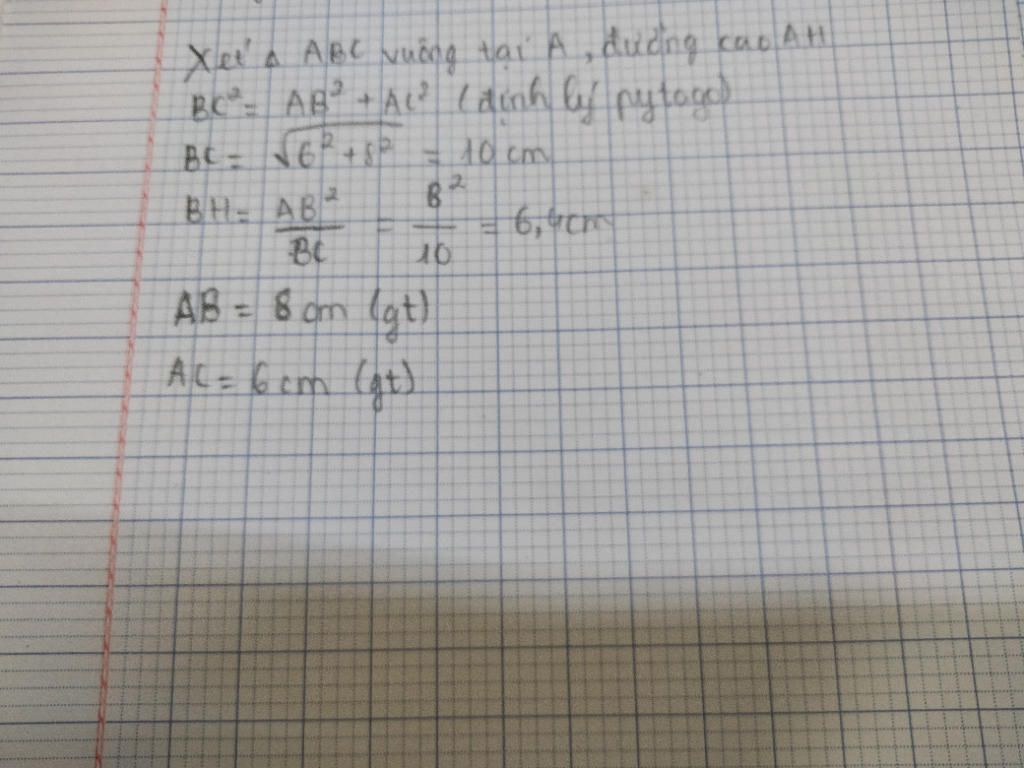 Xét Δ ABC vuông tại A, đường cao AH
BC² = AB² + AC² (định lý pytago)
BC = √6² + 8² = 10 cm
BH = AB²/BC = 8²/10 = 6,4cm
AB = 8 cm (gt)
AC = 6 cm (gt)